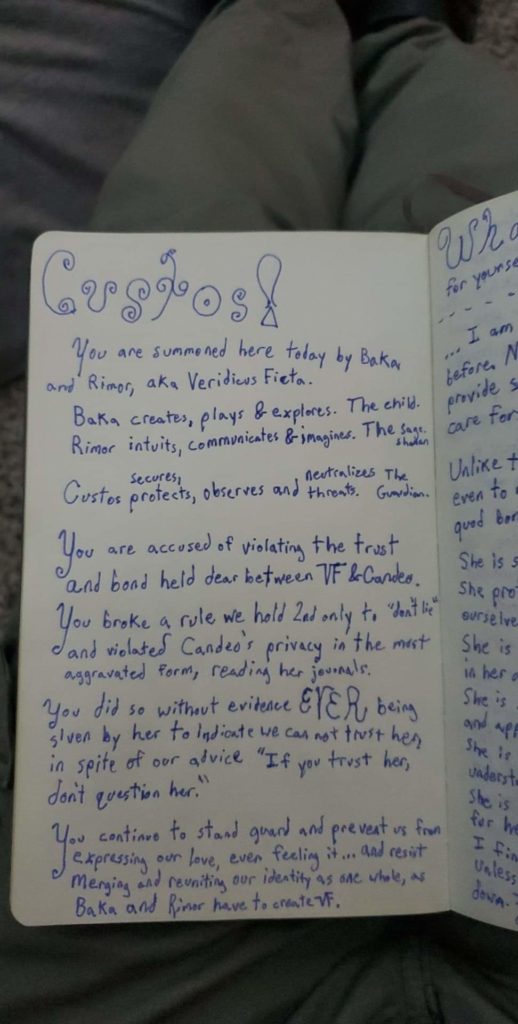 Custos!
You are summoned here today by Baka
and Rimor, aka Veridicus Ficta.
Baka creates, plays & explores. The child.
Rimor intuits, communicates & imagines. The sage.
secures, neutralizes The
Custos protects, observes and threats. Guardian.
You are accused of violating the trust
and bond held dear between VF & Candeo.
You broke a rule we hold 2nd only to "don't lie"
and violated Candeo's privacy in the most
aggravated form, reading her journals.
You did so without evidence EVER being
given by her to indicate we can not trust her,
in spite of our advice "If you trust her,
don't question her."
You continue to stand guard and prevent us from
expressing our love, even feeling it... and resist
merging and reuniting our identity as one whole, as
Baka and Rimor have to create VF.
for yourse
... I am
before. N
provide s
care for
Unlike t
even to
She is s
She pro
ourselve
She is
in her
She is
and app
She is
underst
She is
for he
I fin
unless
down.